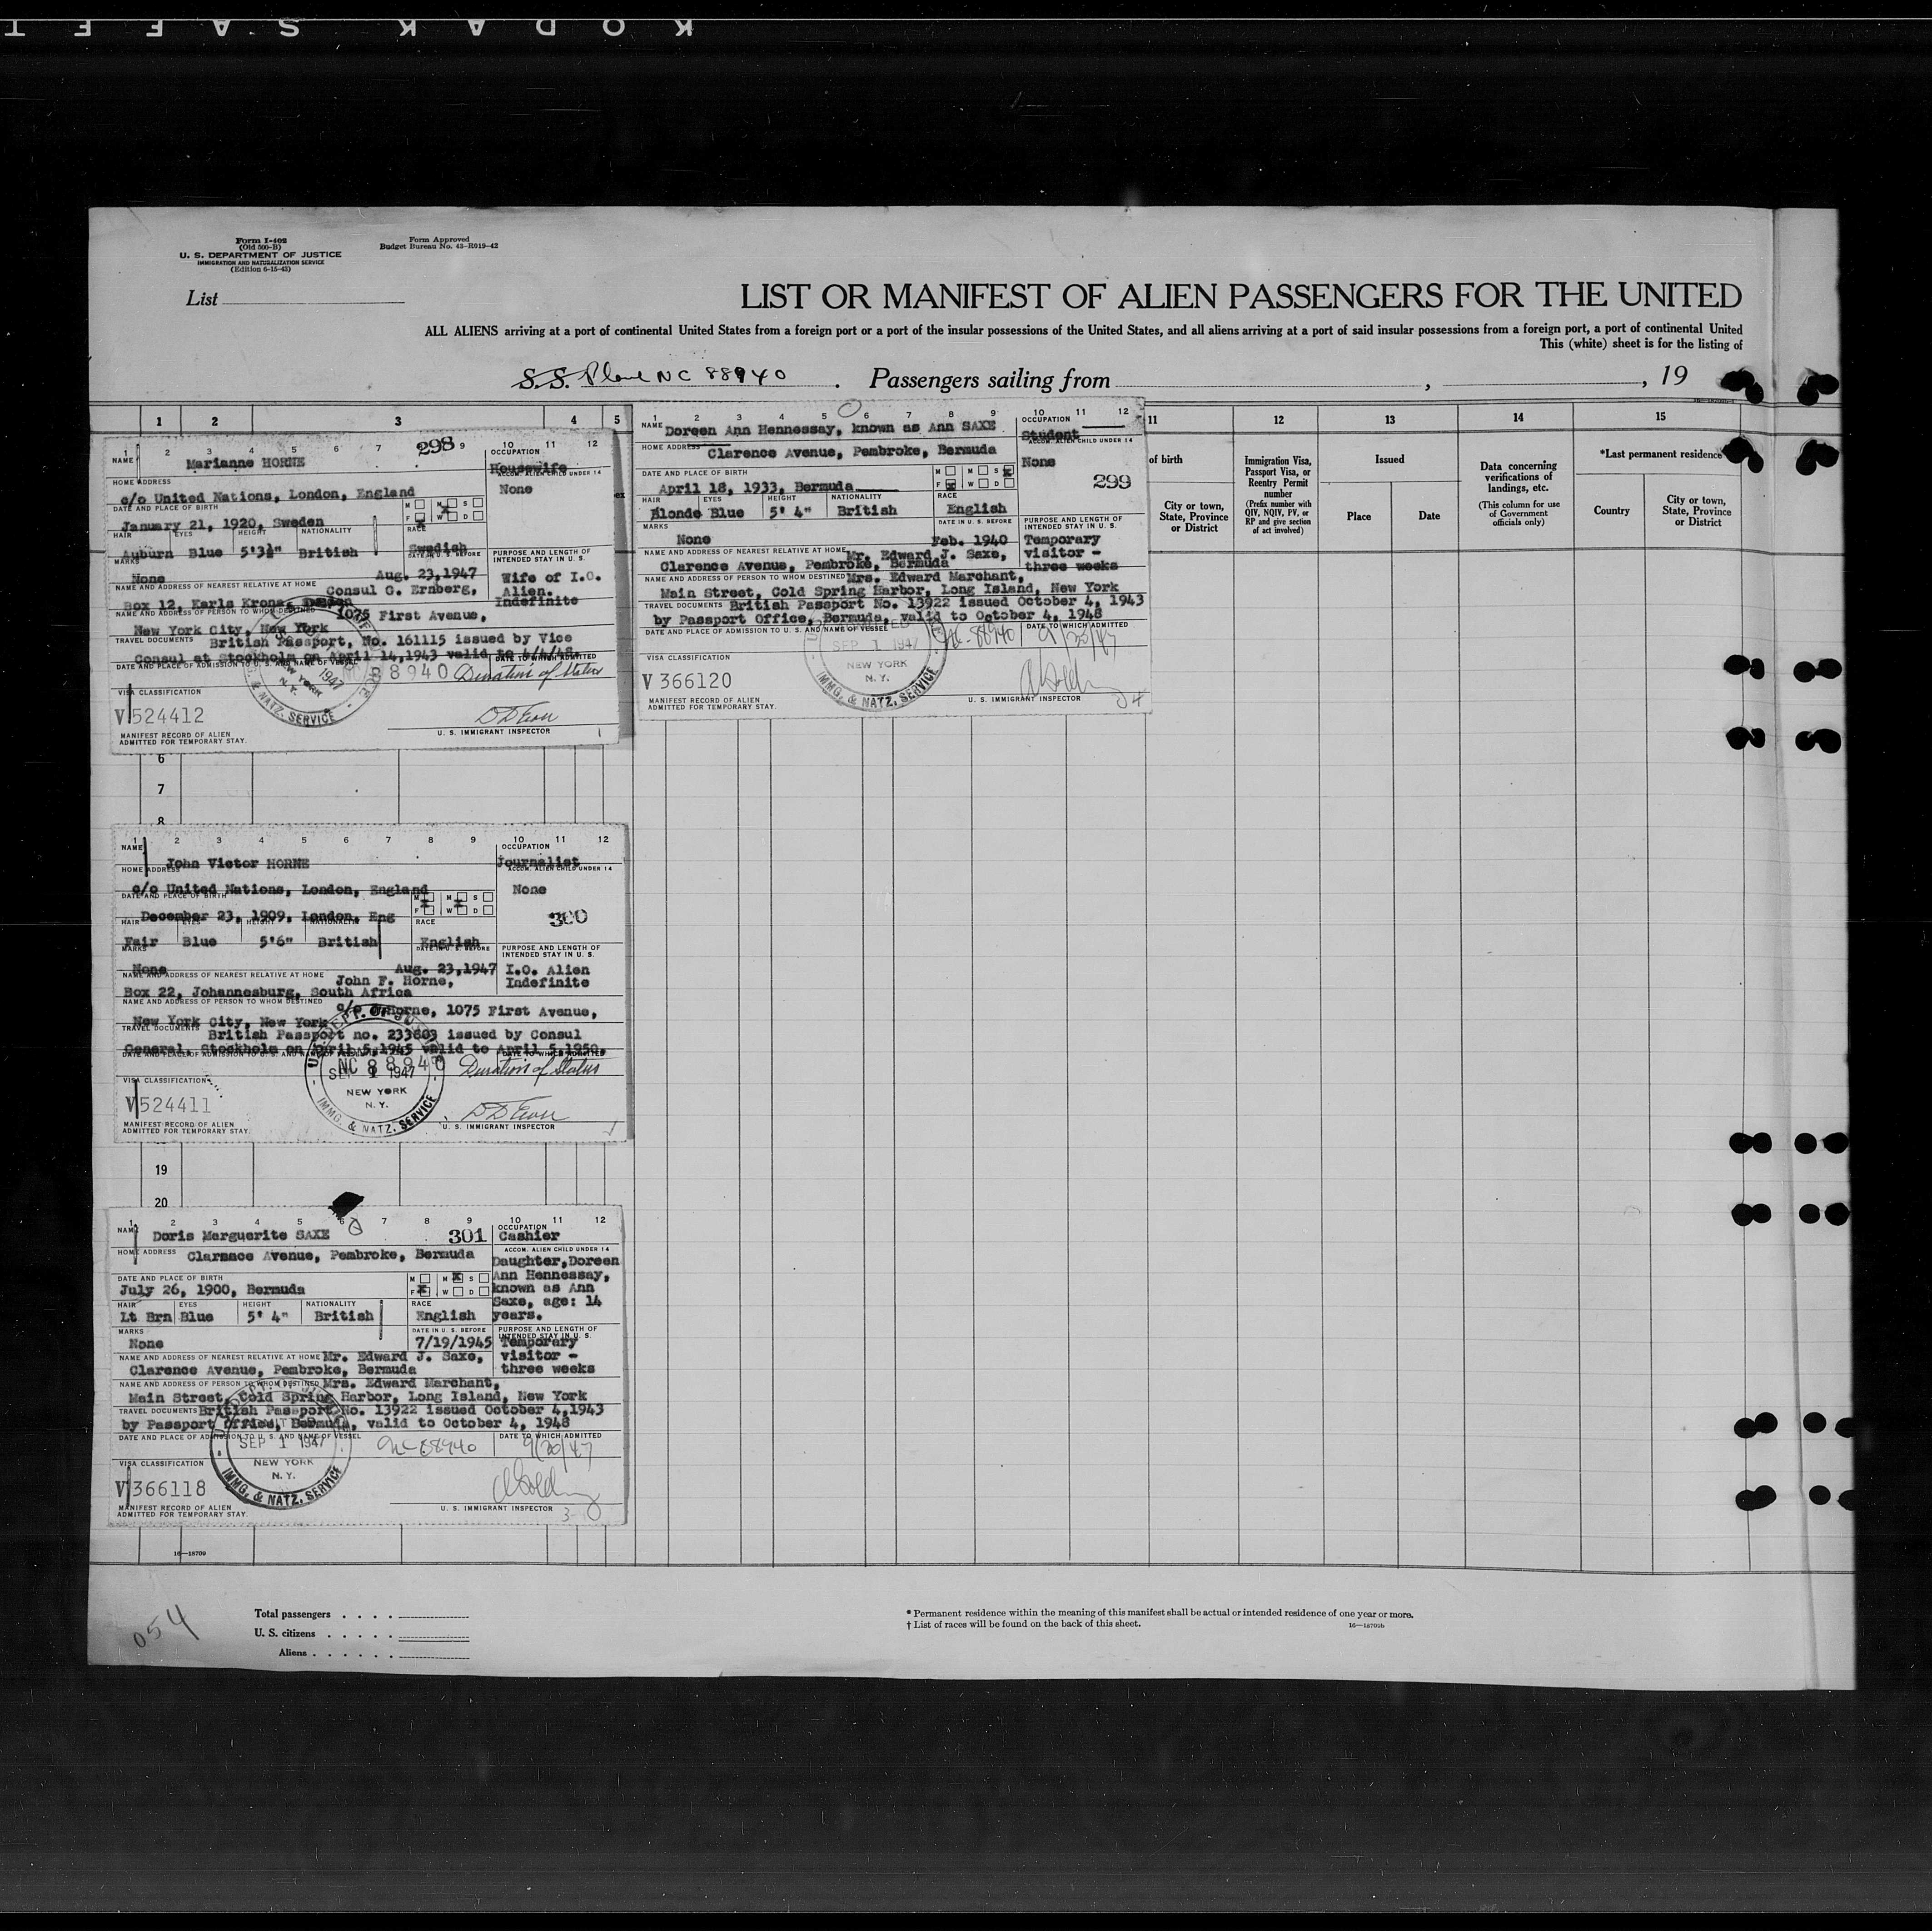 KODAK SAFET
Form I-402
(Old 500-B)
U. S. DEPARTMENT OF JUSTICE
IMMIGRATION AND NATURALIZATION SERVICE
(Edition 6-15-43)
Form Approved
Budget Bureau No. 43-R019-42
List
LIST OR MANIFEST OF ALIEN PASSENGERS FOR THE UNITED
ALL ALIENS arriving at a port of continental United States from a foreign port or a port of the insular possessions of the United States, and all aliens arriving at a port of said insular possessions from a foreign port, a port of continental United
This (white) sheet is for the listing of
S.S. Plane NC 88940 . Passengers sailing from , , 19
1 2 3 4 5
11 12 13 14 15
of birth
City or town, State, Province or District
Immigration Visa, Passport Visa, or Reentry Permit number
(Prefix number with QIV, NQIV, PV, or RP and give section of act involved)
Issued
Place
Date
Data concerning verifications of landings, etc.
(This column for use of Government officials only)
*Last permanent residence
Country
City or town, State, Province or District
1 2 3 4 5 6 7 298 9 10 11 12
NAME Marianne HORNE
OCCUPATION
Housewife
HOME ADDRESS
ACCOM. ALIEN CHILD UNDER 14
c/o United Nations, London, England
None
DATE AND PLACE OF BIRTH
M M S
F W D
January 21, 1920, Sweden
HAIR EYES HEIGHT NATIONALITY RACE
Auburn Blue 5'3½" British Swedish
MARKS
DATE IN U. S. BEFORE
PURPOSE AND LENGTH OF INTENDED STAY IN U. S.
None Aug. 23,1947
Wife of I.O. Alien. Indefinite
NAME AND ADDRESS OF NEAREST RELATIVE AT HOME Consul C. Ernberg,
Box 12, Karls Krona,
NAME AND ADDRESS OF PERSON TO WHOM DESTINED 1075 First Avenue,
New York City, New York
TRAVEL DOCUMENTS British Passport, No. 161115 issued by Vice
Consul at Stockholm on April 14,1943 valid to 4/4/48.
DATE AND PLACE OF ADMISSION TO U. S. AND NAME OF VESSEL
DATE TO WHICH ADMITTED
8940 Duration of Status
1947
NEW YORK
N. Y.
IMMG. & NATZ. SERVICE
VISA CLASSIFICATION
V 524412
MANIFEST RECORD OF ALIEN
ADMITTED FOR TEMPORARY STAY.
U. S. IMMIGRANT INSPECTOR
1 2 3 4 5 6 7 8 9 10 11 12
NAME Doreen Ann Hennessay, known as Ann SAXE
OCCUPATION
Student
HOME ADDRESS Clarence Avenue, Pembroke, Bermuda
ACCOM. ALIEN CHILD UNDER 14
None
DATE AND PLACE OF BIRTH
M M S
F W D
April 18, 1933, Bermuda
299
HAIR EYES HEIGHT NATIONALITY RACE
Blonde Blue 5' 4" British English
MARKS
DATE IN U. S. BEFORE
PURPOSE AND LENGTH OF INTENDED STAY IN U. S.
None Feb. 1940
Temporary visitor - three weeks
NAME AND ADDRESS OF NEAREST RELATIVE AT HOME Mr. Edward J. Saxe,
Clarence Avenue, Pembroke, Bermuda
NAME AND ADDRESS OF PERSON TO WHOM DESTINED Mrs. Edward Marchant,
Main Street, Cold Spring Harbor, Long Island, New York
TRAVEL DOCUMENTS British Passport No. 13922 issued October 4, 1943
by Passport Office, Bermuda, valid to October 4, 1948
DATE AND PLACE OF ADMISSION TO U. S. AND NAME OF VESSEL
DATE TO WHICH ADMITTED
SEP 1 1947
NEW YORK
N. Y.
IMMG. & NATZ. SERVICE
NC-88940
VISA CLASSIFICATION
V 366120
MANIFEST RECORD OF ALIEN
ADMITTED FOR TEMPORARY STAY.
U. S. IMMIGRANT INSPECTOR
6
7
8
1 2 3 4 5 6 7 8 9 10 11 12
NAME John Victor HORNE
OCCUPATION
Journalist
HOME ADDRESS
ACCOM. ALIEN CHILD UNDER 14
c/o United Nations, London, England
None
DATE AND PLACE OF BIRTH
M M S
F W D
December 23, 1909, London, Eng
300
HAIR EYES HEIGHT NATIONALITY RACE
Fair Blue 5'6" British English
MARKS
DATE IN U. S. BEFORE
PURPOSE AND LENGTH OF INTENDED STAY IN U. S.
None Aug. 23,1947
I.O. Alien Indefinite
NAME AND ADDRESS OF NEAREST RELATIVE AT HOME John F. Horne,
Box 22, Johannesburg, South Africa
NAME AND ADDRESS OF PERSON TO WHOM DESTINED c/o Horne, 1075 First Avenue,
New York City, New York
TRAVEL DOCUMENTS British Passport no. 233603 issued by Consul
General, Stockholm on April 5,1945 valid to April 5,1950.
DATE AND PLACE OF ADMISSION TO U. S. AND NAME OF VESSEL
DATE TO WHICH ADMITTED
NC 88940 Duration of Status
SEP 1 1947
NEW YORK
N. Y.
IMMG. & NATZ. SERVICE
VISA CLASSIFICATION
V 524411
MANIFEST RECORD OF ALIEN
ADMITTED FOR TEMPORARY STAY.
U. S. IMMIGRANT INSPECTOR
19
20
1 2 3 4 5 6 7 8 9 10 11 12
NAME Doris Merguerite SAXE
301
OCCUPATION
Cashier
HOME ADDRESS Clarence Avenue, Pembroke, Bermuda
ACCOM. ALIEN CHILD UNDER 14
Daughter,Doreen Ann Hennessay, known as Ann Saxe, age: 14 years.
DATE AND PLACE OF BIRTH
M M S
F W D
July 26, 1900, Bermuda
HAIR EYES HEIGHT NATIONALITY RACE
Lt Brn Blue 5' 4" British English
MARKS
DATE IN U. S. BEFORE
PURPOSE AND LENGTH OF INTENDED STAY IN U. S.
None 7/19/1945
Temporary visitor - three weeks
NAME AND ADDRESS OF NEAREST RELATIVE AT HOME Mr. Edward J. Saxe,
Clarence Avenue, Pembroke, Bermuda
NAME AND ADDRESS OF PERSON TO WHOM DESTINED Mrs. Edward Marchant,
Main Street, Cold Spring Harbor, Long Island, New York
TRAVEL DOCUMENTS British Passport No. 13922 issued October 4,1943
by Passport Office, Bermuda, valid to October 4, 1948
DATE AND PLACE OF ADMISSION TO U. S. AND NAME OF VESSEL
DATE TO WHICH ADMITTED
SEP 1 1947
NEW YORK
N. Y.
IMMG. & NATZ. SERVICE
NC 88940
VISA CLASSIFICATION
V 366118
MANIFEST RECORD OF ALIEN
ADMITTED FOR TEMPORARY STAY.
U. S. IMMIGRANT INSPECTOR
16—18709
054
Total passengers . . . .
U. S. citizens . . . . .
Aliens . . . . . .
* Permanent residence within the meaning of this manifest shall be actual or intended residence of one year or more.
† List of races will be found on the back of this sheet.
16—18709b